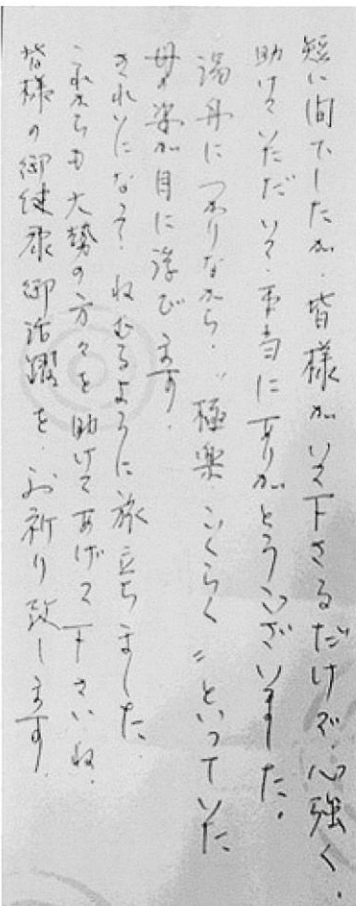 短い間でしたが、皆様がいて下さるだけで、心強く、
助けていただいて、本当にありがとうございました。
湯舟につかりながら、〝極楽、ごくらく〟といっていた
母の姿が目に浮びます。
きれいになって、ねむるように旅立ちました。
これからも大勢の方々を助けてあげて下さいね。
皆様の御健康御活躍を、お祈り致します。